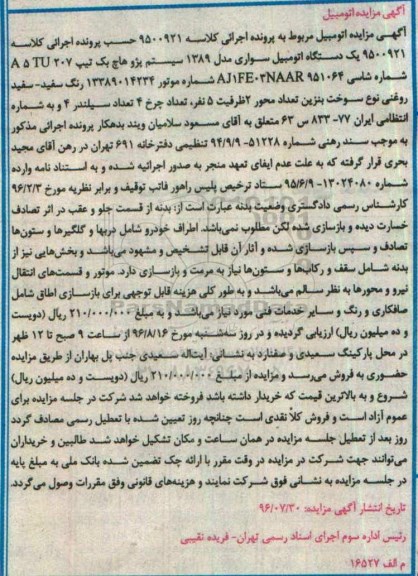 آگهی مزایده اتومبیل
آگهی مزایده اتومبیل مربوط به پرونده اجرائی کلاسه ۹۵۰۰۹۲۱ حسب پرونده اجرائی کلاسه
۹۵۰۰۹۲۱ یک دستگاه اتومبیل سواری مدل ۱۳۸۹ سیستم پژو هاچ بک تیپ ۲۰۷ A ۵ TU
شماره شاسی AJ۱FE۰۳NAAR ۹۵۱۰۶۴ شماره موتور ۱۳۳۸۹۰۱۴۲۳۴ رنگ سفید-سفید
روغنی نوع سوخت بنزین تعداد محور ۲ظرفیت ۵ نفر، تعداد چرخ ۴ تعداد سیلندر ۴ و به شماره
انتظامی ایران ۷۷- ۸۳۳ س ۶۳ متعلق به آقای مسعود سلامیان ویند بدهکار پرونده اجرائی مذکور
به موجب سند رهنی شماره ۵۱۲۲۸-۹۴/۹/۹ تنظیمی دفترخانه ۶۹۱ تهران در رهن آقای مجید
بحری قرار گرفته که به علت عدم ایفای تعهد منجر به صدور اجرائیه شده و به استناد نامه وارده
شماره ۱۳۰۲۴۰۸۰- ۹۵/۶/۹ ستاد ترخیص پلیس راهور فاتب توقیف و برابر نظریه مورخ ۹۶/۲/۳
کارشناس رسمی دادگستری وضعیت بدنه عبارت است از: بدنه از قسمت جلو و عقب در اثر تصادف
خسارت دیده و بازسازی شده لکن مطلوب نمی‌باشد. اطراف خودرو شامل دربها و گلگیرها و ستون‌ها
تصادف و سپس بازسازی شده و آثار آن قابل تشخیص و مشهود می‌باشد و بخش‌هایی نیز از
بدنه شامل سقف و رکاب‌ها و ستون‌ها نیاز به مرمت و بازسازی دارد. موتور و قسمت‌های انتقال
نیرو و محورها به نظر سالم می‌باشد و به طور کلی هزینه قابل توجهی برای بازسازی اطاق شامل
صافکاری و رنگ و سایر خدمات فنی مورد نیاز می‌باشد و به مبلغ ۲۱۰/۰۰۰/۰۰۰ ریال (دویست
و ده میلیون ریال) ارزیابی گردیده و در روز سه‌شنبه مورخ ۹۶/۸/۱۶ از ساعت ۹ صبح تا ۱۲ ظهر
در محل پارکینگ سعیدی و صفنارد به نشانی: آیت‌اله سعیدی جنب پل بهاران از طریق مزایده
حضوری به فروش می‌رسد و مزایده از مبلغ ۲۱۰/۰۰۰/۰۰۰ ریال (دویست و ده میلیون ریال)
شروع و به بالاترین قیمت که خریدار داشته باشد فروخته خواهد شد شرکت در جلسه مزایده برای
عموم آزاد است و فروش کلاً نقدی است چنانچه روز تعیین شده با تعطیل رسمی مصادف گردد
روز بعد از تعطیل جلسه مزایده در همان ساعت و مکان تشکیل خواهد شد طالبین و خریداران
می‌توانند جهت شرکت در مزایده در وقت مقرر با ارائه چک تضمین شده بانک ملی به مبلغ پایه
در جلسه مزایده به نشانی فوق شرکت نمایند و هزینه‌های قانونی وفق مقررات وصول می‌گردد.
تاریخ انتشار آگهی مزایده: ۹۶/۰۷/۳۰
رئیس اداره سوم اجرای اسناد رسمی تهران- فریده نقیبی
م الف ۱۶۵۲۷